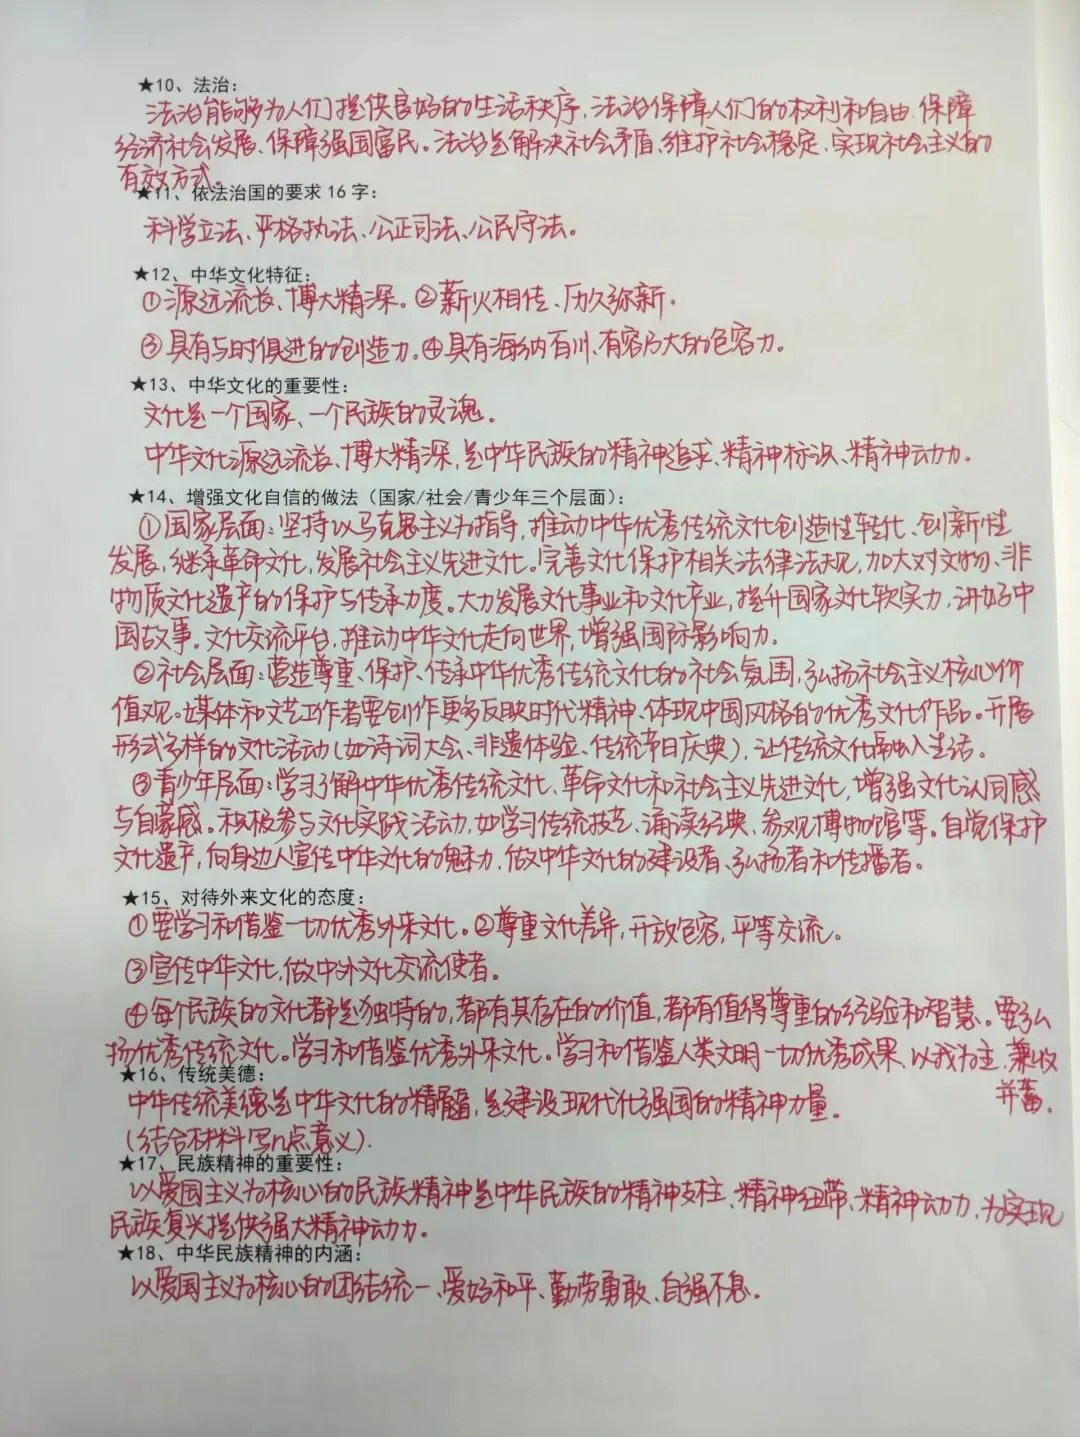 ★10、法治:
法治能够为人们提供良好的生活秩序,法治保障人们的权利和自由,保障
经济社会发展、保障强国富民。法治是解决社会矛盾、维护社会稳定、实现社会主义的
有效方式。
★11、依法治国的要求16字:
科学立法、严格执法、公正司法、公民守法。
★12、中华文化特征:
①源远流长、博大精深。②薪火相传、历久弥新。
③具有与时俱进的创造力。④具有海纳百川、有容乃大的包容力。
★13、中华文化的重要性:
文化是一个国家、一个民族的灵魂。
中华文化源远流长、博大精深,是中华民族的精神追求、精神标识、精神动力。
★14、增强文化自信的做法(国家/社会/青少年三个层面):
①国家层面:坚持以马克思主义为指导,推动中华优秀传统文化创造性转化、创新性
发展,继承革命文化,发展社会主义先进文化。完善文化保护相关法律法规,加大对文物、非
物质文化遗产的保护与传承力度。大力发展文化事业和文化产业,提升国家文化软实力,讲好中
国故事。文化交流平台,推动中华文化走向世界,增强国际影响力。
②社会层面:营造尊重、保护、传承中华优秀传统文化的社会氛围,弘扬社会主义核心价
值观。媒体和文艺工作者要创作更多反映时代精神、体现中国风格的优秀文化作品。开展
形式多样的文化活动(如诗词大会、非遗体验、传统节日庆典),让传统文化融入生活。
③青少年层面:学习了解中华优秀传统文化、革命文化和社会主义先进文化,增强文化认同感
与自豪感。积极参与文化实践活动,如学习传统技艺、诵读经典、参观博物馆等。自觉保护
文化遗产,向身边人宣传中华文化的魅力,做中华文化的建设者、弘扬者和传播者。
★15、对待外来文化的态度:
①要学习和借鉴一切优秀外来文化。②尊重文化差异,开放包容,平等交流。
③宣传中华文化,做中外文化交流使者。
④每个民族的文化都是独特的,都有其存在的价值,都有值得尊重的经验和智慧。要弘
扬优秀传统文化。学习和借鉴优秀外来文化。学习和借鉴人类文明一切优秀成果,以我为主,兼收
并蓄。
★16、传统美德:
中华传统美德是中华文化的精髓,是建设现代化强国的精神力量。
(结合材料写n点意义).
★17、民族精神的重要性:
以爱国主义为核心的民族精神是中华民族的精神支柱、精神纽带、精神动力,为实现
民族复兴提供强大精神动力。
★18、中华民族精神的内涵:
以爱国主义为核心的团结统一、爱好和平、勤劳勇敢、自强不息。